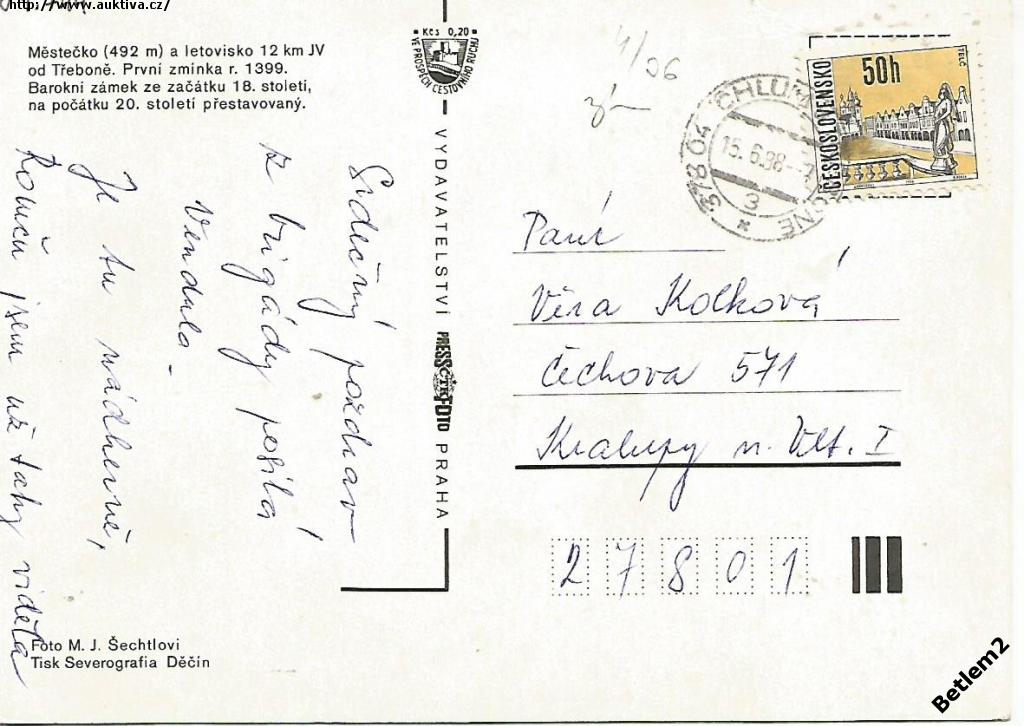 http://www.auktiva.cz/
Městečko (492 m) a letovisko 12 km JV
od Třeboně. První zmínka r. 1399.
Barokní zámek ze začátku 18. století,
na počátku 20. století přestavovaný.
Kčs 0,20
VE PROSPĚCH CESTOVNÍHO RUCHU
VYDAVATELSTVÍ PRESSFOTO PRAHA
ČTK
Srdečný pozdrav
z brigády posílá
Vendula.
Je tu nádherně,
Romču jsem už taky viděla
4/06
378 04 CHLUM
15.6.98
3
ČESKOSLOVENSKO
50h
TELČ
Paní
Věra Kolková
Čechova 571
Kralupy n. Vlt. I
27801
Foto M. J. Šechtlovi
Tisk Severografia Děčín
Betlem2